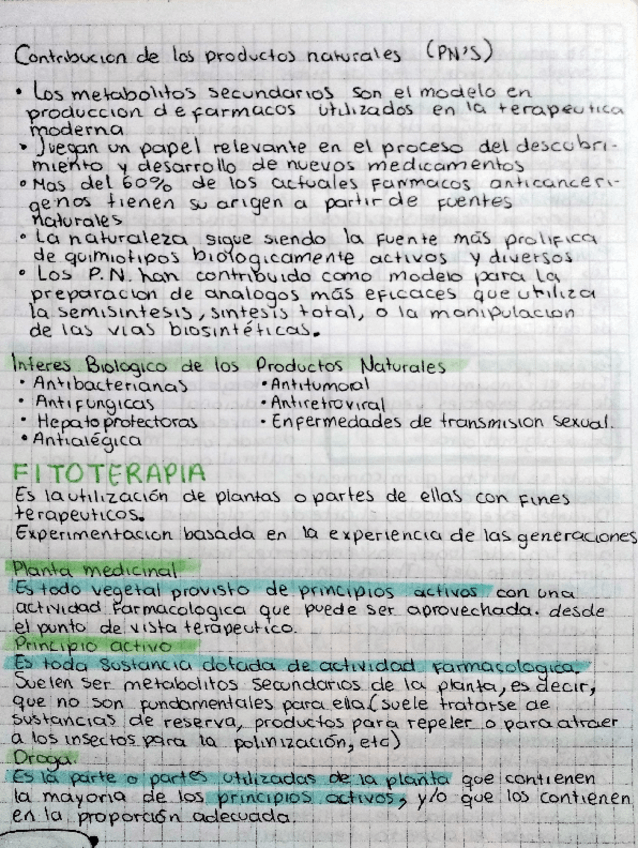 Contribucion de los productos naturales (PN'S)
• Los metabolitos secundarios son el modelo en
produccion de farmacos utilizados en la terapeutica
moderna
• Juegan un papel relevante en el proceso del descubri-
miento y desarrollo de nuevos medicamentos
• Mas del 60% de los actuales farmacos anticanceri-
genos tienen su origen a partir de fuentes
naturales
• La naturaleza sigue siendo la fuente más prolifica
de quimiotipos biologicamente activos y diversos
• Los P.N. han contribuido como modelo para la
preparacion de analogos más eficaces que utiliza
la semisintesis, sintesis total, o la manipulacion
de las vias biosintéticas.
Interes Biologico de los Productos Naturales
• Antibacterianas
• Antifungicas
• Hepatoprotectoras
• Antialégica
• Antitumoral
• Antiretroviral
• Enfermedades de transmision sexual.
FITOTERAPIA
Es la utilización de plantas o partes de ellas con fines
terapeuticos.
Experimentacion basada en la experiencia de las generaciones
Planta medicinal
Es todo vegetal provisto de principios activos con una
actividad farmacologica que puede ser aprovechada. desde
el punto de vista terapeutico.
Principio activo
Es toda sustancia dotada de actividad farmacologica.
Suelen ser metabolitos secundarios de la planta, es decir,
que no son fundamentales para ella (suele tratarse de
sustancias de reserva, productos para repeler o para atraer
a los insectos para la polinización, etc)
Droga.
Es la parte o partes utilizadas de la planta que contienen
la mayoria de los principios activos, y/o que los contienen
en la proporción adecuada.